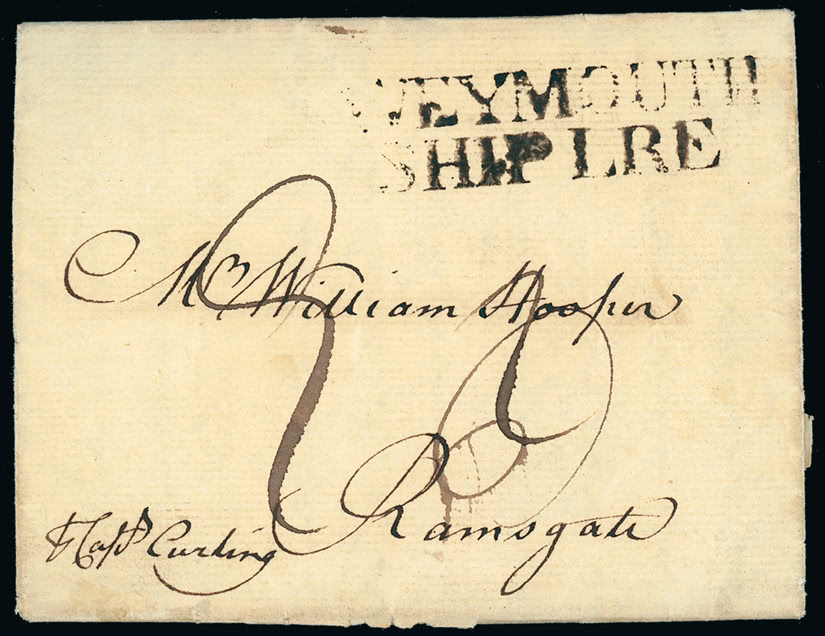 WEYMOUTH
SHIP LRE
Mr. William Hooper
Ramsgate
Capn Curling